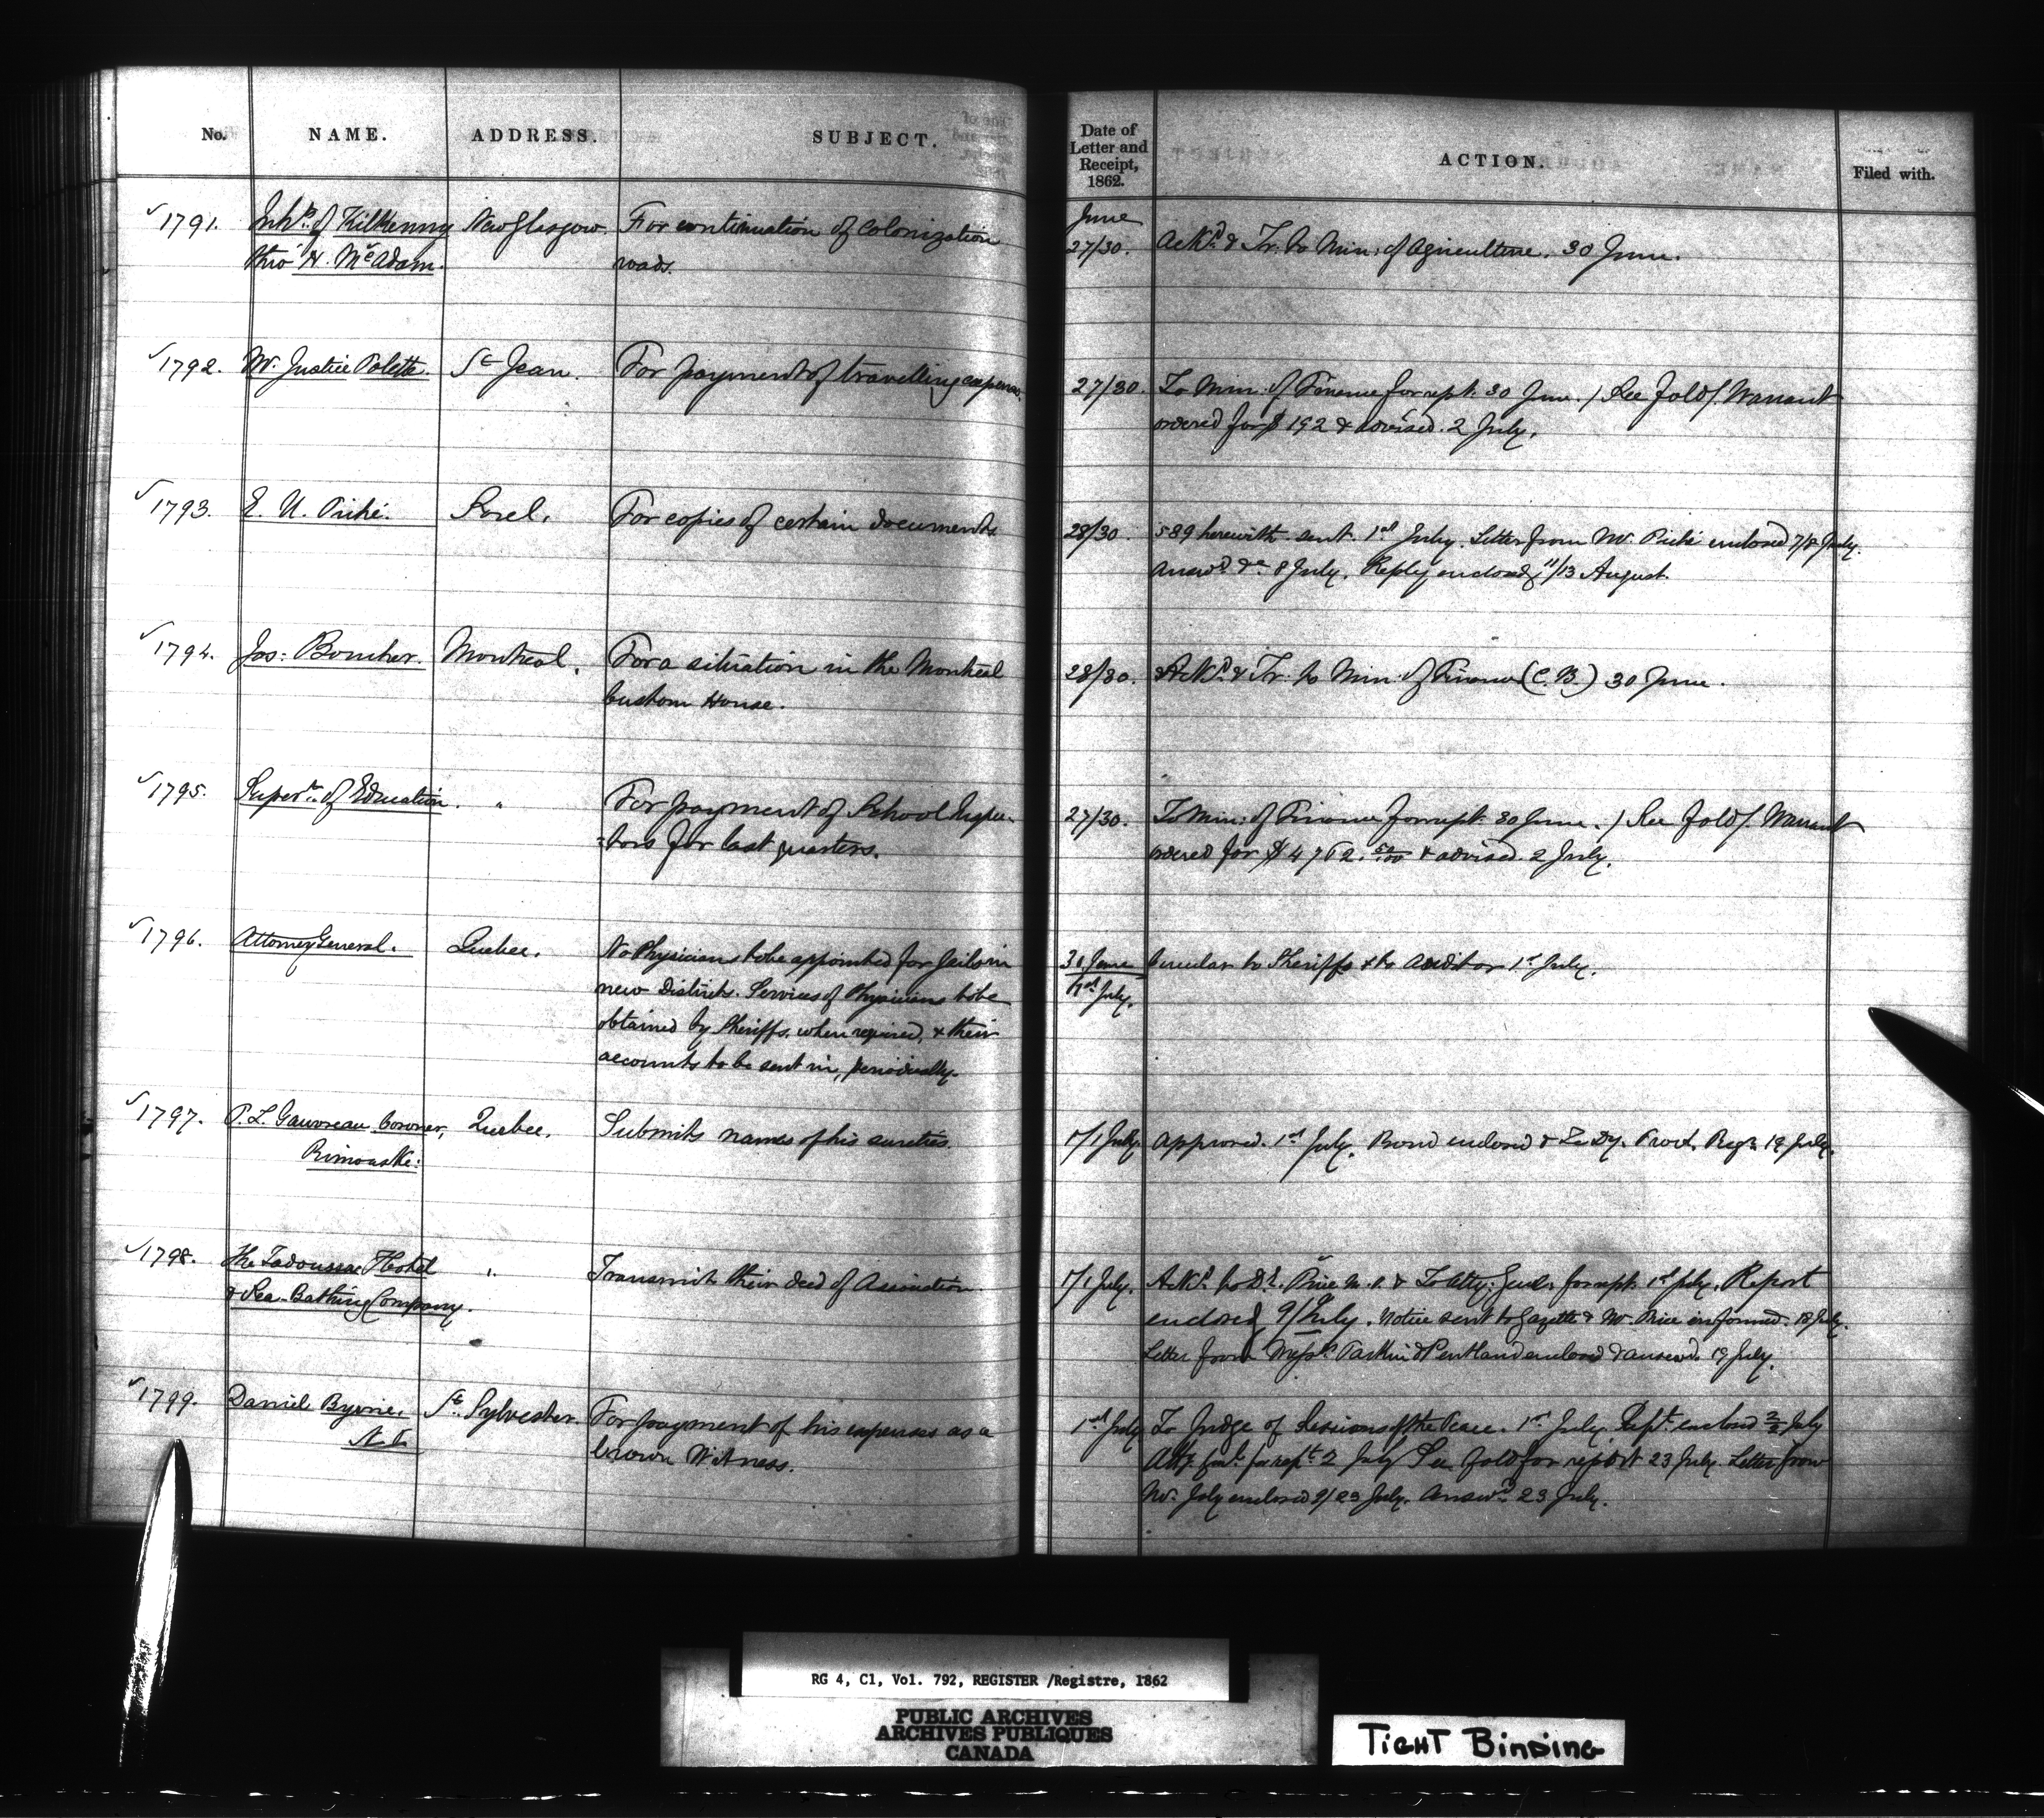 No. NAME. ADDRESS. SUBJECT. Date of Letter and Receipt, 1862. ACTION. Filed with.
1791. Inhts. of Kilkenny New Glasgow. For continuation of Colonization June
thro' H. McAdam. roads. 27/30. Ackd. & Tr. to Min: of Agriculture. 30 June.
1792. Mr. Justice Polette. St Jean. For payment of travelling expenses. 27/30. To Min: of Finance for rept. 30 June. / See fold/. Warrant
ordered for $192 & advised. 2 July.
1793. E. U. Piché. Sorel. For copies of certain documents 28/30. 589 herewith sent. 1st July. Letter from Mr. Piché enclosed 7/8 July.
Answd. 8 July. Reply enclosed 11/13 August.
1794. Jos: Boucher. Montreal. For a situation in the Montreal 28/30. Ackd. & Tr. to Min: of Finance (C. B.) 30 June.
Custom House.
1795. Supert. of Education. " For payment of School Inspec- 27/30. To Min: of Finance for rept. 30 June. / See fold/. Warrant
-tors for last quarters. ordered for 50/100 & advised. 2 July.
1796. Attorney General. Quebec. No Physicians to be appointed for Gaols in 30 June Circular to Sheriffs & to Auditor 1st July.
new Districts. Services of Physicians to be 1st July.
obtained by Sheriffs, when required, & their
accounts to be sent in, periodically.
1797. P. L. Gauvreau, Coroner, Quebec. Submits names of his sureties. 1/1 July. Approved. 1st July. Bond enclosed & To Dy. Provl. Regr. 19 July.
Rimouski.
1798. The Tadoussac Hotel " Transmits their deed of Association. 1/1 July. Ackd. to Price & To Atty: Genl. for rept. 1st July. Report
& Sea-Bathing Company. enclosed 9/ July. Notice sent to Gazette & Mr. Price informed. 18 July.
Letter from Messrs. Parkin & Pentland enclosed & answd. 19 July.
1799. Daniel Byrne. St. Sylvester. For payment of his expenses as a 1st July To Judge of Sessions of the Peace. 1st July. Rept. enclosed 2/2 July
Crown Witness. Atty. Genl. for rept. 2 July See fold for report 23 July. Letter from
Mr. Joly enclosed 9/23 July. Answd. 23 July.
RG 4, C1, Vol. 792, REGISTER /Registre, 1862
PUBLIC ARCHIVES
ARCHIVES PUBLIQUES
CANADA
TIGHT BINDING